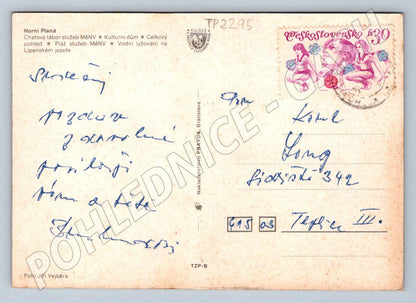 TP2295
Horní Planá
Chatový tábor služeb MěNV ★ Kulturní dům ★ Celkový
pohled ★ Pláž služeb MěNV ★ Vodní lyžování na
Lipenském jezeře
Československo
30
Srdečný
pozdrav
z dovolené
posílají
Pan
Karel
Long
Sídliště 342
415 03 Teplice III.
Nakladatelství PRAVDA, Bratislava
Foto Jiří Vejběra
TZP-B
POHLEDNICE